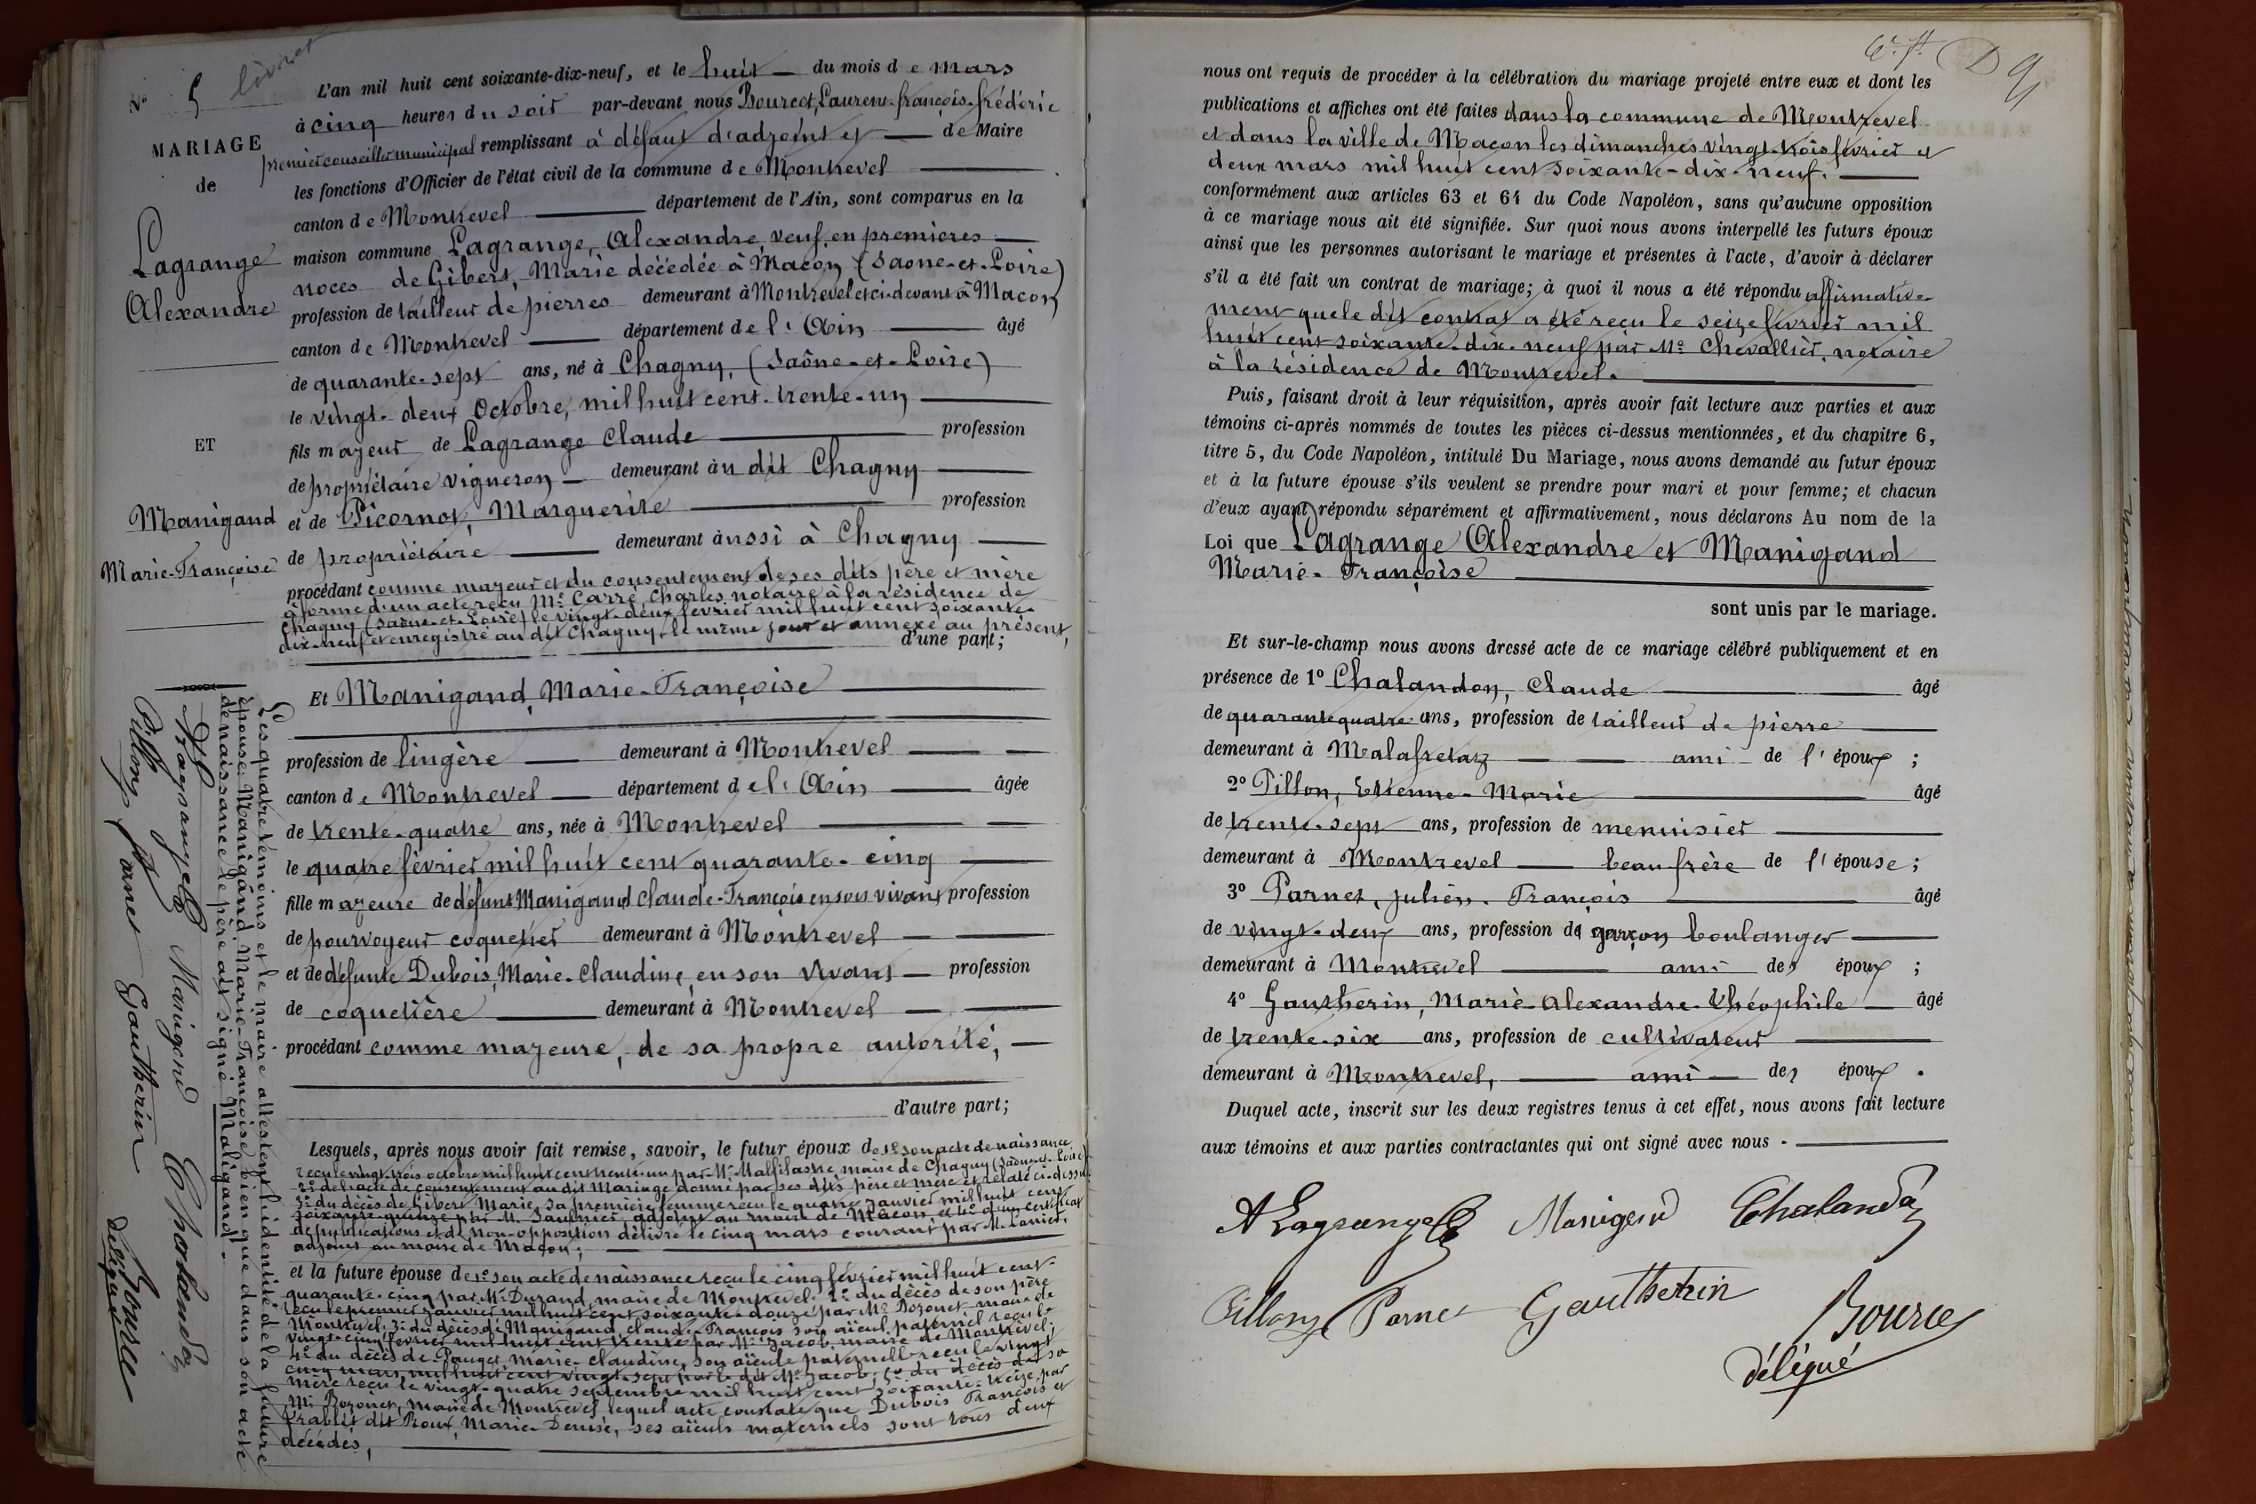 N° 5 livret
MARIAGE
de
Lagrange
Alexandre
ET
Manigand
Marie-Françoise
L'an mil huit cent soixante-dix-neuf, et le huit du mois de Mars
à cinq heures du soir par-devant nous Bourcet, Laurent-françois-frédéric
premier conseiller municipal remplissant à défaut d'adjoint et de Maire
les fonctions d'Officier de l'état civil de la commune de Montrevel
canton de Montrevel département de l'Ain, sont comparus en la
maison commune Lagrange, Alexandre, veuf en premières
noces de Gibert, Marie décédée à Macon (Saône-et-Loire)
profession de tailleur de pierres demeurant à Montrevel et ci-devant à Macon
canton de Montrevel département de l'Ain âgé
de quarante-sept ans, né à Chagny, (Saône-et-Loire)
le vingt-deux Octobre, mil huit cent-trente-un
fils majeur de Lagrange Claude profession
de propriétaire vigneron demeurant au dit Chagny
et de Picornot, Marguerite profession
de propriétaire demeurant aussi à Chagny
procédant comme majeur et du consentement de ses dits père et mère
à forme d'un acte reçu Me Carré, Charles, notaire à la résidence de
Chagny (Saône-et-Loire) le vingt-deux février mil huit cent soixante-
dix-neuf et enregistré au dit Chagny, le même jour et annexé au présent,
d'une part;
Et Manigand, Marie-Françoise
profession de lingère demeurant à Montrevel
canton de Montrevel département de l'Ain âgée
de trente-quatre ans, née à Montrevel
le quatre février mil huit cent quarante-cinq
fille majeure de défunt Manigand Claude-François en son vivant profession
de pourvoyeur coquetier demeurant à Montrevel
et de défunte Dubois, Marie-Claudine, en son vivant profession
de coquetière demeurant à Montrevel
procédant comme majeure, de sa propre autorité,
d'autre part;
Lesquels, après nous avoir fait remise, savoir, le futur époux de 1° son acte de naissance
reçu le vingt-trois octobre mil huit cent trente-un par Mr Malfilastre, maire de Chagny (Saône-et-Loire)
2° de l'acte de consentement au dit Mariage donné par ses dits père et mère et relaté ci-dessus
3° du décès de Gibert Marie, sa première femme reçu le quatre janvier mil huit cent
soixante-quinze par M. Saulnier, adjoint au maire de Macon et 4° d'un certificat
de publications et de non-opposition délivré le cinq mars courant par M. Lanier,
adjoint au maire de Macon;
et la future épouse de 1° son acte de naissance reçu le cinq février mil huit cent-
quarante-cinq par Mr Durand, maire de Montrevel; 2° du décès de son père
reçu le premier janvier mil huit cent soixante-douze par Mr Bozonet maire de
Montrevel; 3° du décès de Manigand, Claude-François son aïeul paternel reçu le
vingt-cinq février mil huit cent trente par Mr Jacob, maire de Montrevel;
4° du décès de Pauget Marie-Claudine, son aïeule paternelle reçu le vingt
cinq mars mil huit cent vingt-sept par le dit Mr Jacob; 5° du décès de sa
mère reçu le vingt-quatre septembre mil huit cent soixante-treize, par
Mr Bozonet, maire de Montrevel lequel acte constate que Dubois François et
Prablit dit Roux, Marie-Denise, ses aïeuls maternels sont tous deux
décédés,
Les quatre témoins et le maire attestent l'identité de la future
épouse: Manigand, Marie-Françoise, bien que dans son acte
de naissance le père ait signé Maligand.
A Lagrange Manigand Chalandon
Pillon Parnet Gautherin Bource
délégué
6e ft. D 9
nous ont requis de procéder à la célébration du mariage projeté entre eux et dont les
publications et affiches ont été faites dans la commune de Montrevel
et dans la ville de Macon les dimanches vingt-trois février et
deux mars mil huit cent soixante-dix-neuf.
conformément aux articles 63 et 64 du Code Napoléon, sans qu'aucune opposition
à ce mariage nous ait été signifiée. Sur quoi nous avons interpellé les futurs époux
ainsi que les personnes autorisant le mariage et présentes à l'acte, d'avoir à déclarer
s'il a été fait un contrat de mariage; à quoi il nous a été répondu affirmative-
ment que le dit contrat a été reçu le seize février mil
huit cent soixante-dix-neuf par Me Chevallier, notaire
à la résidence de Montrevel.
Puis, faisant droit à leur réquisition, après avoir fait lecture aux parties et aux
témoins ci-après nommés de toutes les pièces ci-dessus mentionnées, et du chapitre 6,
titre 5, du Code Napoléon, intitulé Du Mariage, nous avons demandé au futur époux
et à la future épouse s'ils veulent se prendre pour mari et pour femme; et chacun
d'eux ayant répondu séparément et affirmativement, nous déclarons Au nom de la
Loi que Lagrange Alexandre et Manigand
Marie-Françoise
sont unis par le mariage.
Et sur-le-champ nous avons dressé acte de ce mariage célébré publiquement et en
présence de 1° Chalandon, Claude âgé
de quarante quatre ans, profession de tailleur de pierre
demeurant à Malafretaz ami de l'époux;
2° Pillon, Etienne-Marie âgé
de trente-sept ans, profession de menuisier
demeurant à Montrevel beau frère de l'épouse;
3° Parnet, Julien-François âgé
de vingt-deux ans, profession de garçon boulanger
demeurant à Montrevel ami des époux;
4° Gautherin, Marie-Alexandre-Théophile âgé
de trente-six ans, profession de cultivateur
demeurant à Montrevel, ami des époux.
Duquel acte, inscrit sur les deux registres tenus à cet effet, nous avons fait lecture
aux témoins et aux parties contractantes qui ont signé avec nous.
A Lagrange Manigand Chalandon
Pillon Parnet Gautherin
Bource
délégué